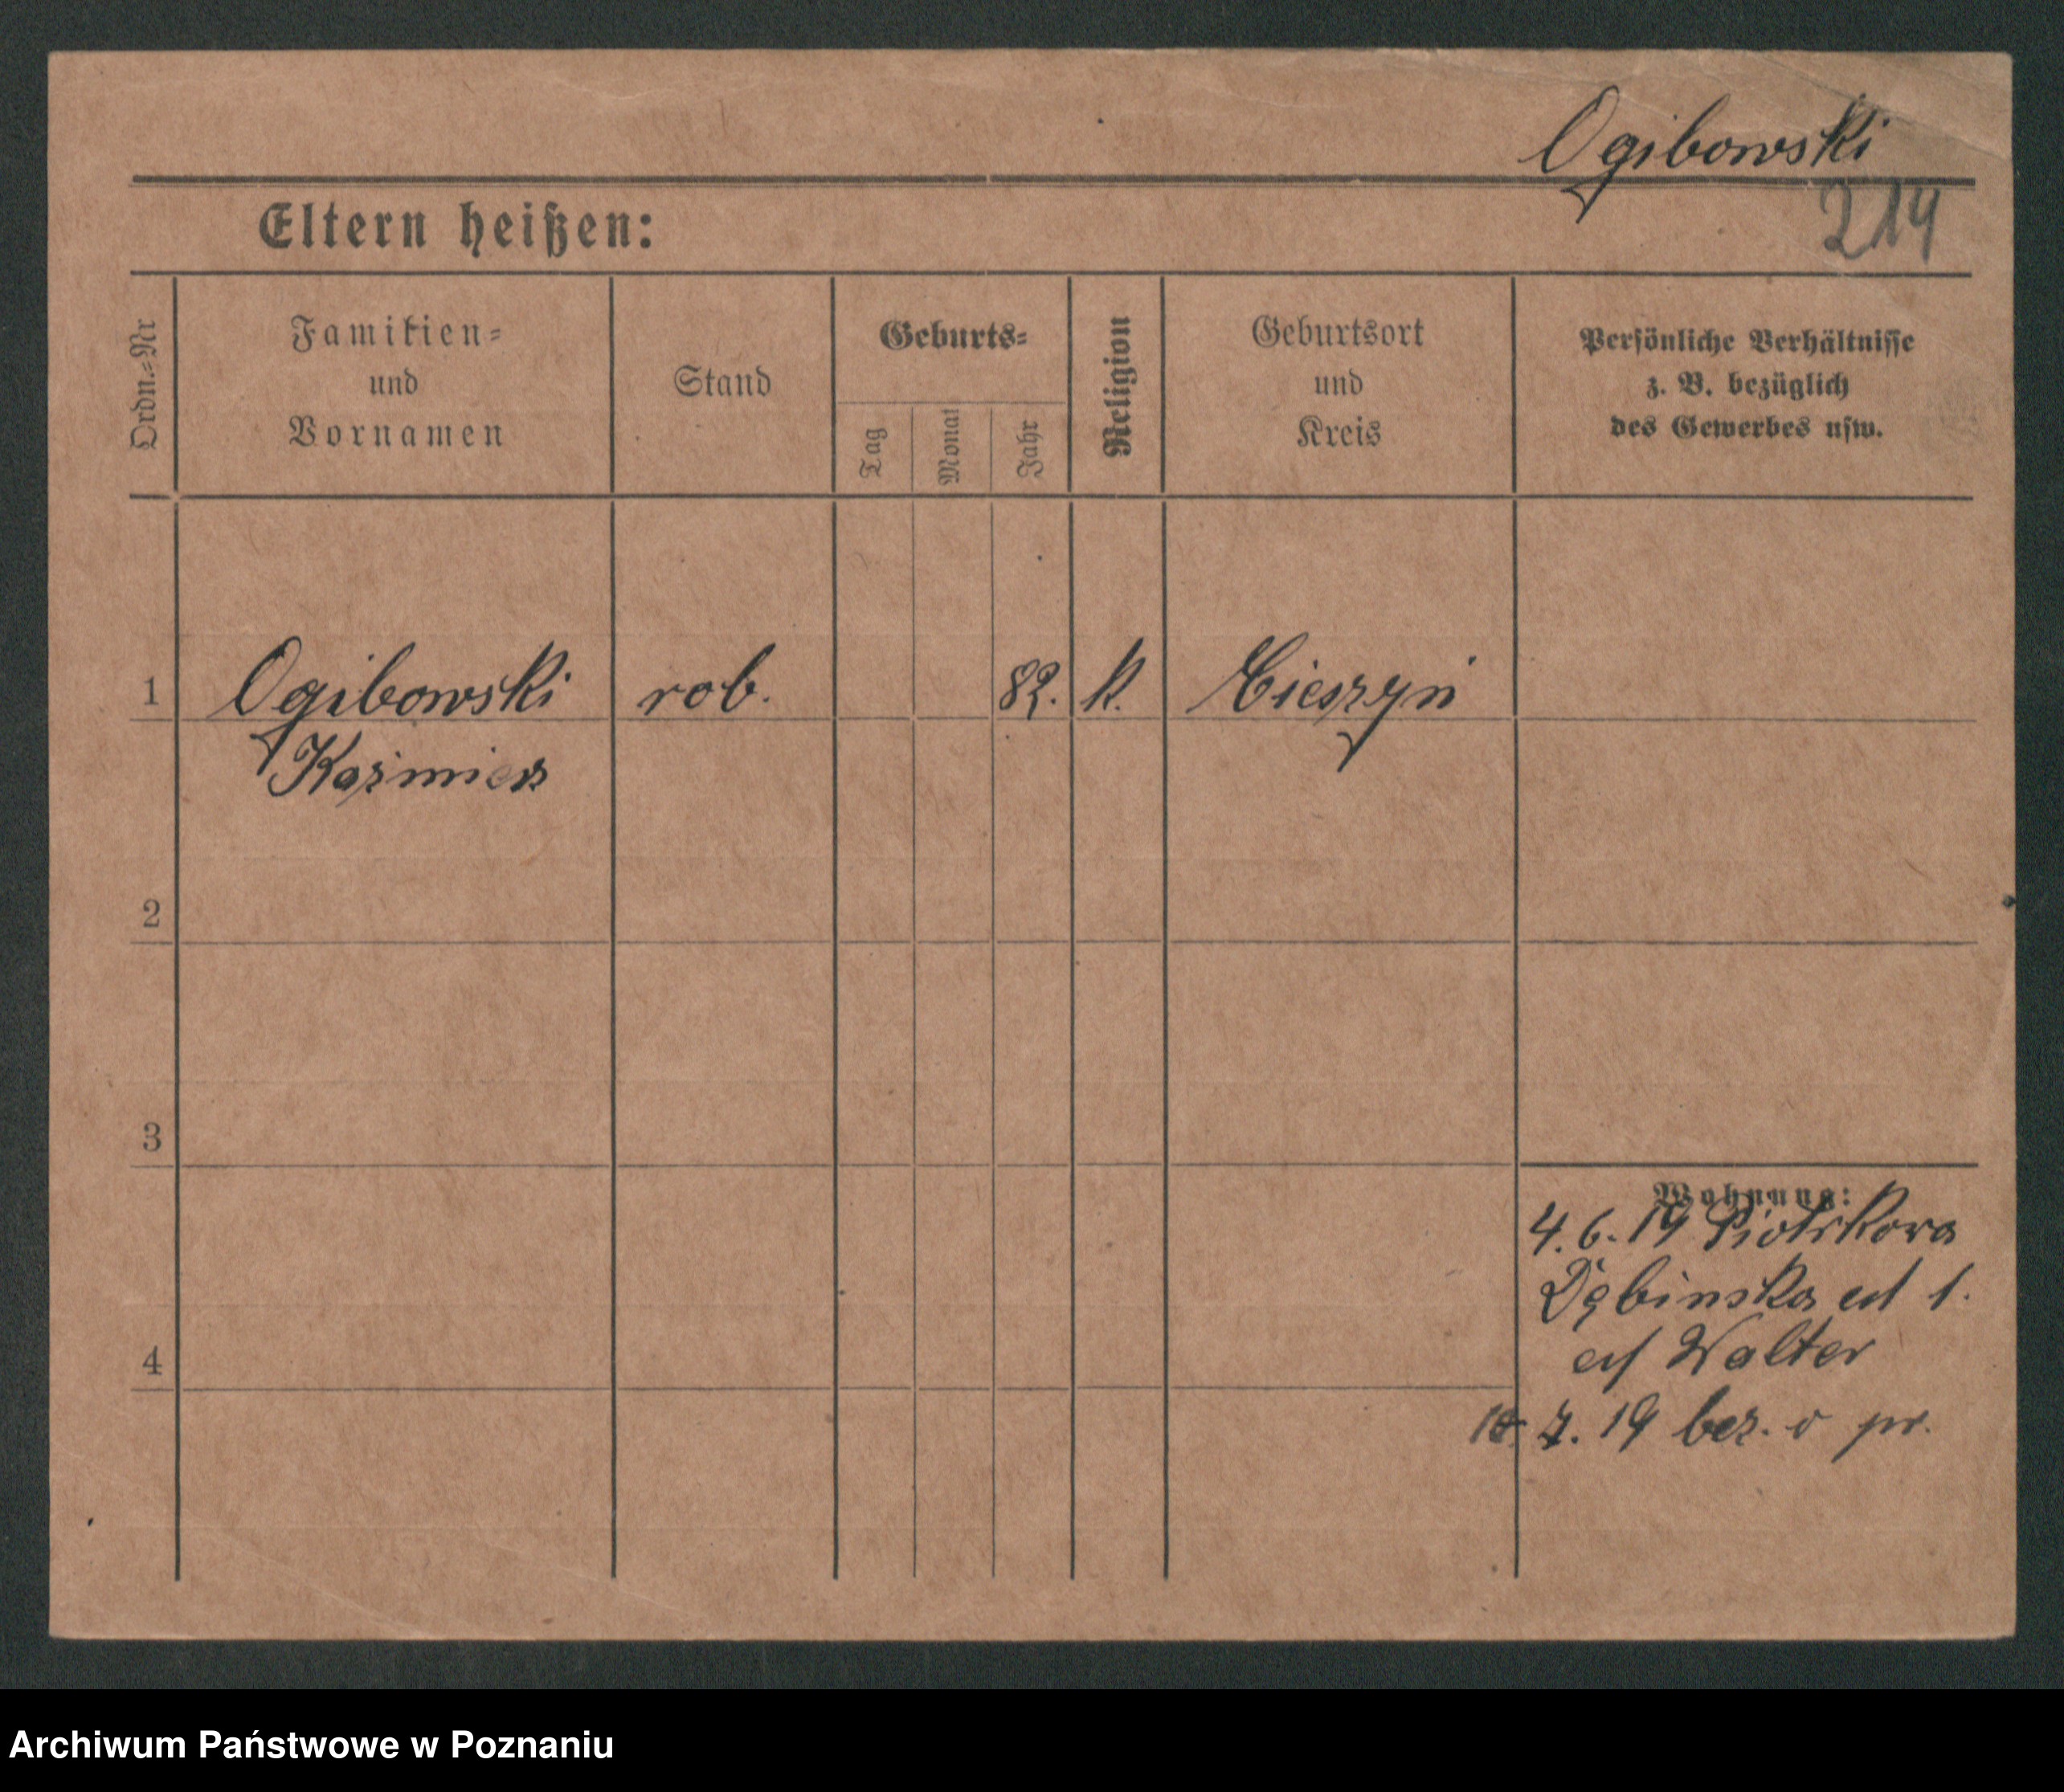 Ogibowski
214
Eltern heißen:
Ordn.-Nr
Familien-
und
Vornamen
Stand
Geburts-
Tag
Monat
Jahr
Religion
Geburtsort
und
Kreis
Persönliche Verhältnisse
z. B. bezüglich
des Gewerbes usw.
1
Ogibowski
rob.
82.
k.
Cieszyn
Kaźmierz
2
3
Wohnung:
4. 6. 19 Piotrkowa
Dębinska
1.
Walter
4
7. 19 bez. o pr.
Archiwum Państwowe w Poznaniu